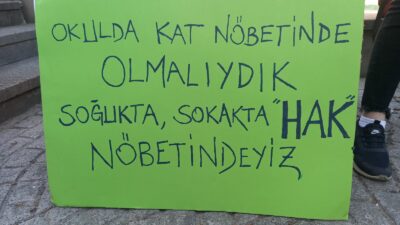 OKULDA KAT NÖBETİNDE
OLMALIYDIK
SOĞUKTA, SOKAKTA "HAK"
NÖBETİNDEYİZ